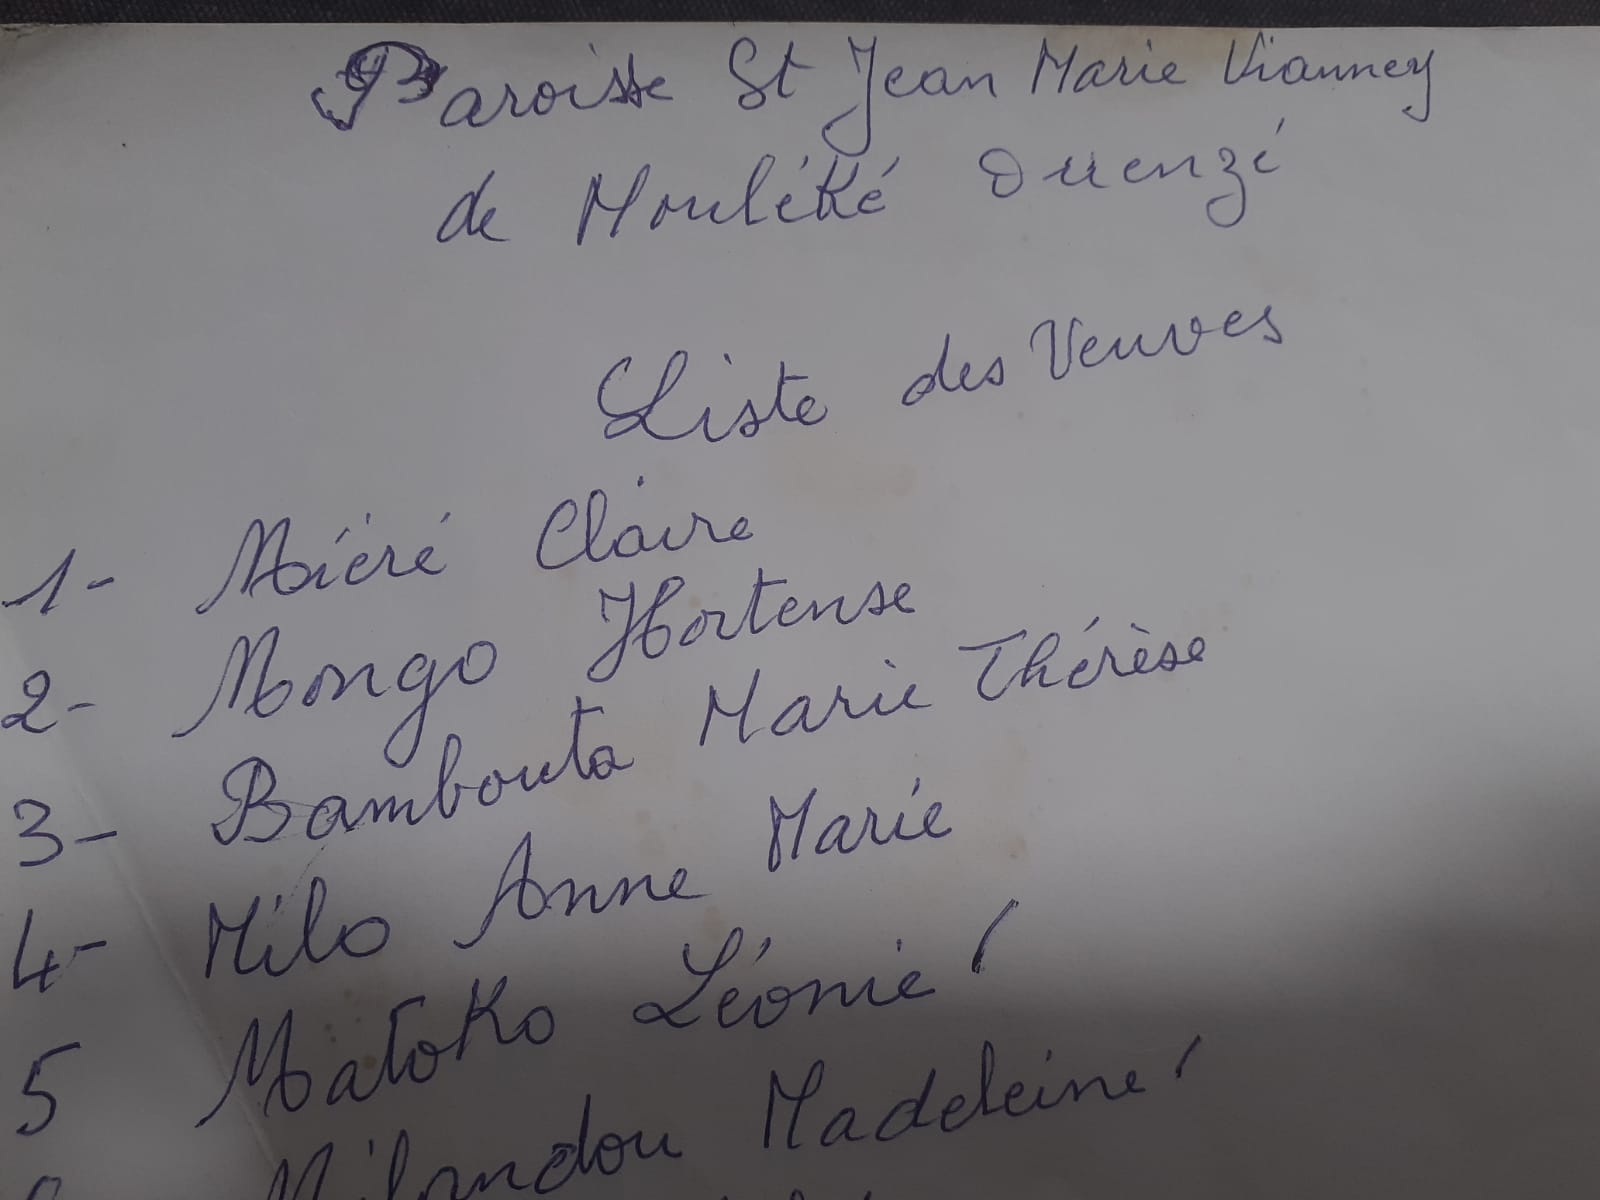 Paroisse St Jean Marie Vianney
de Mouléké Ouenzé
Liste des Veuves
1- Miéré Claire
2- Mongo Hortense
3- Bambouta Marie Thérèse
4- Milo Anne Marie
5 Matoko Léonie
Milandou Madeleine